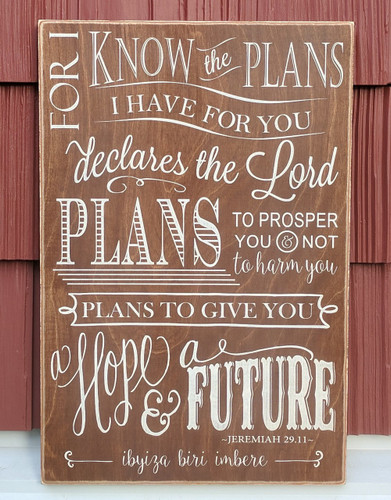 FOR I KNOW the PLANS
I HAVE FOR YOU
declares the Lord
PLANS TO PROSPER
YOU & NOT
to harm you
PLANS TO GIVE YOU
a Hope & a FUTURE
~JEREMIAH 29.11~
ibyiza biri imbere